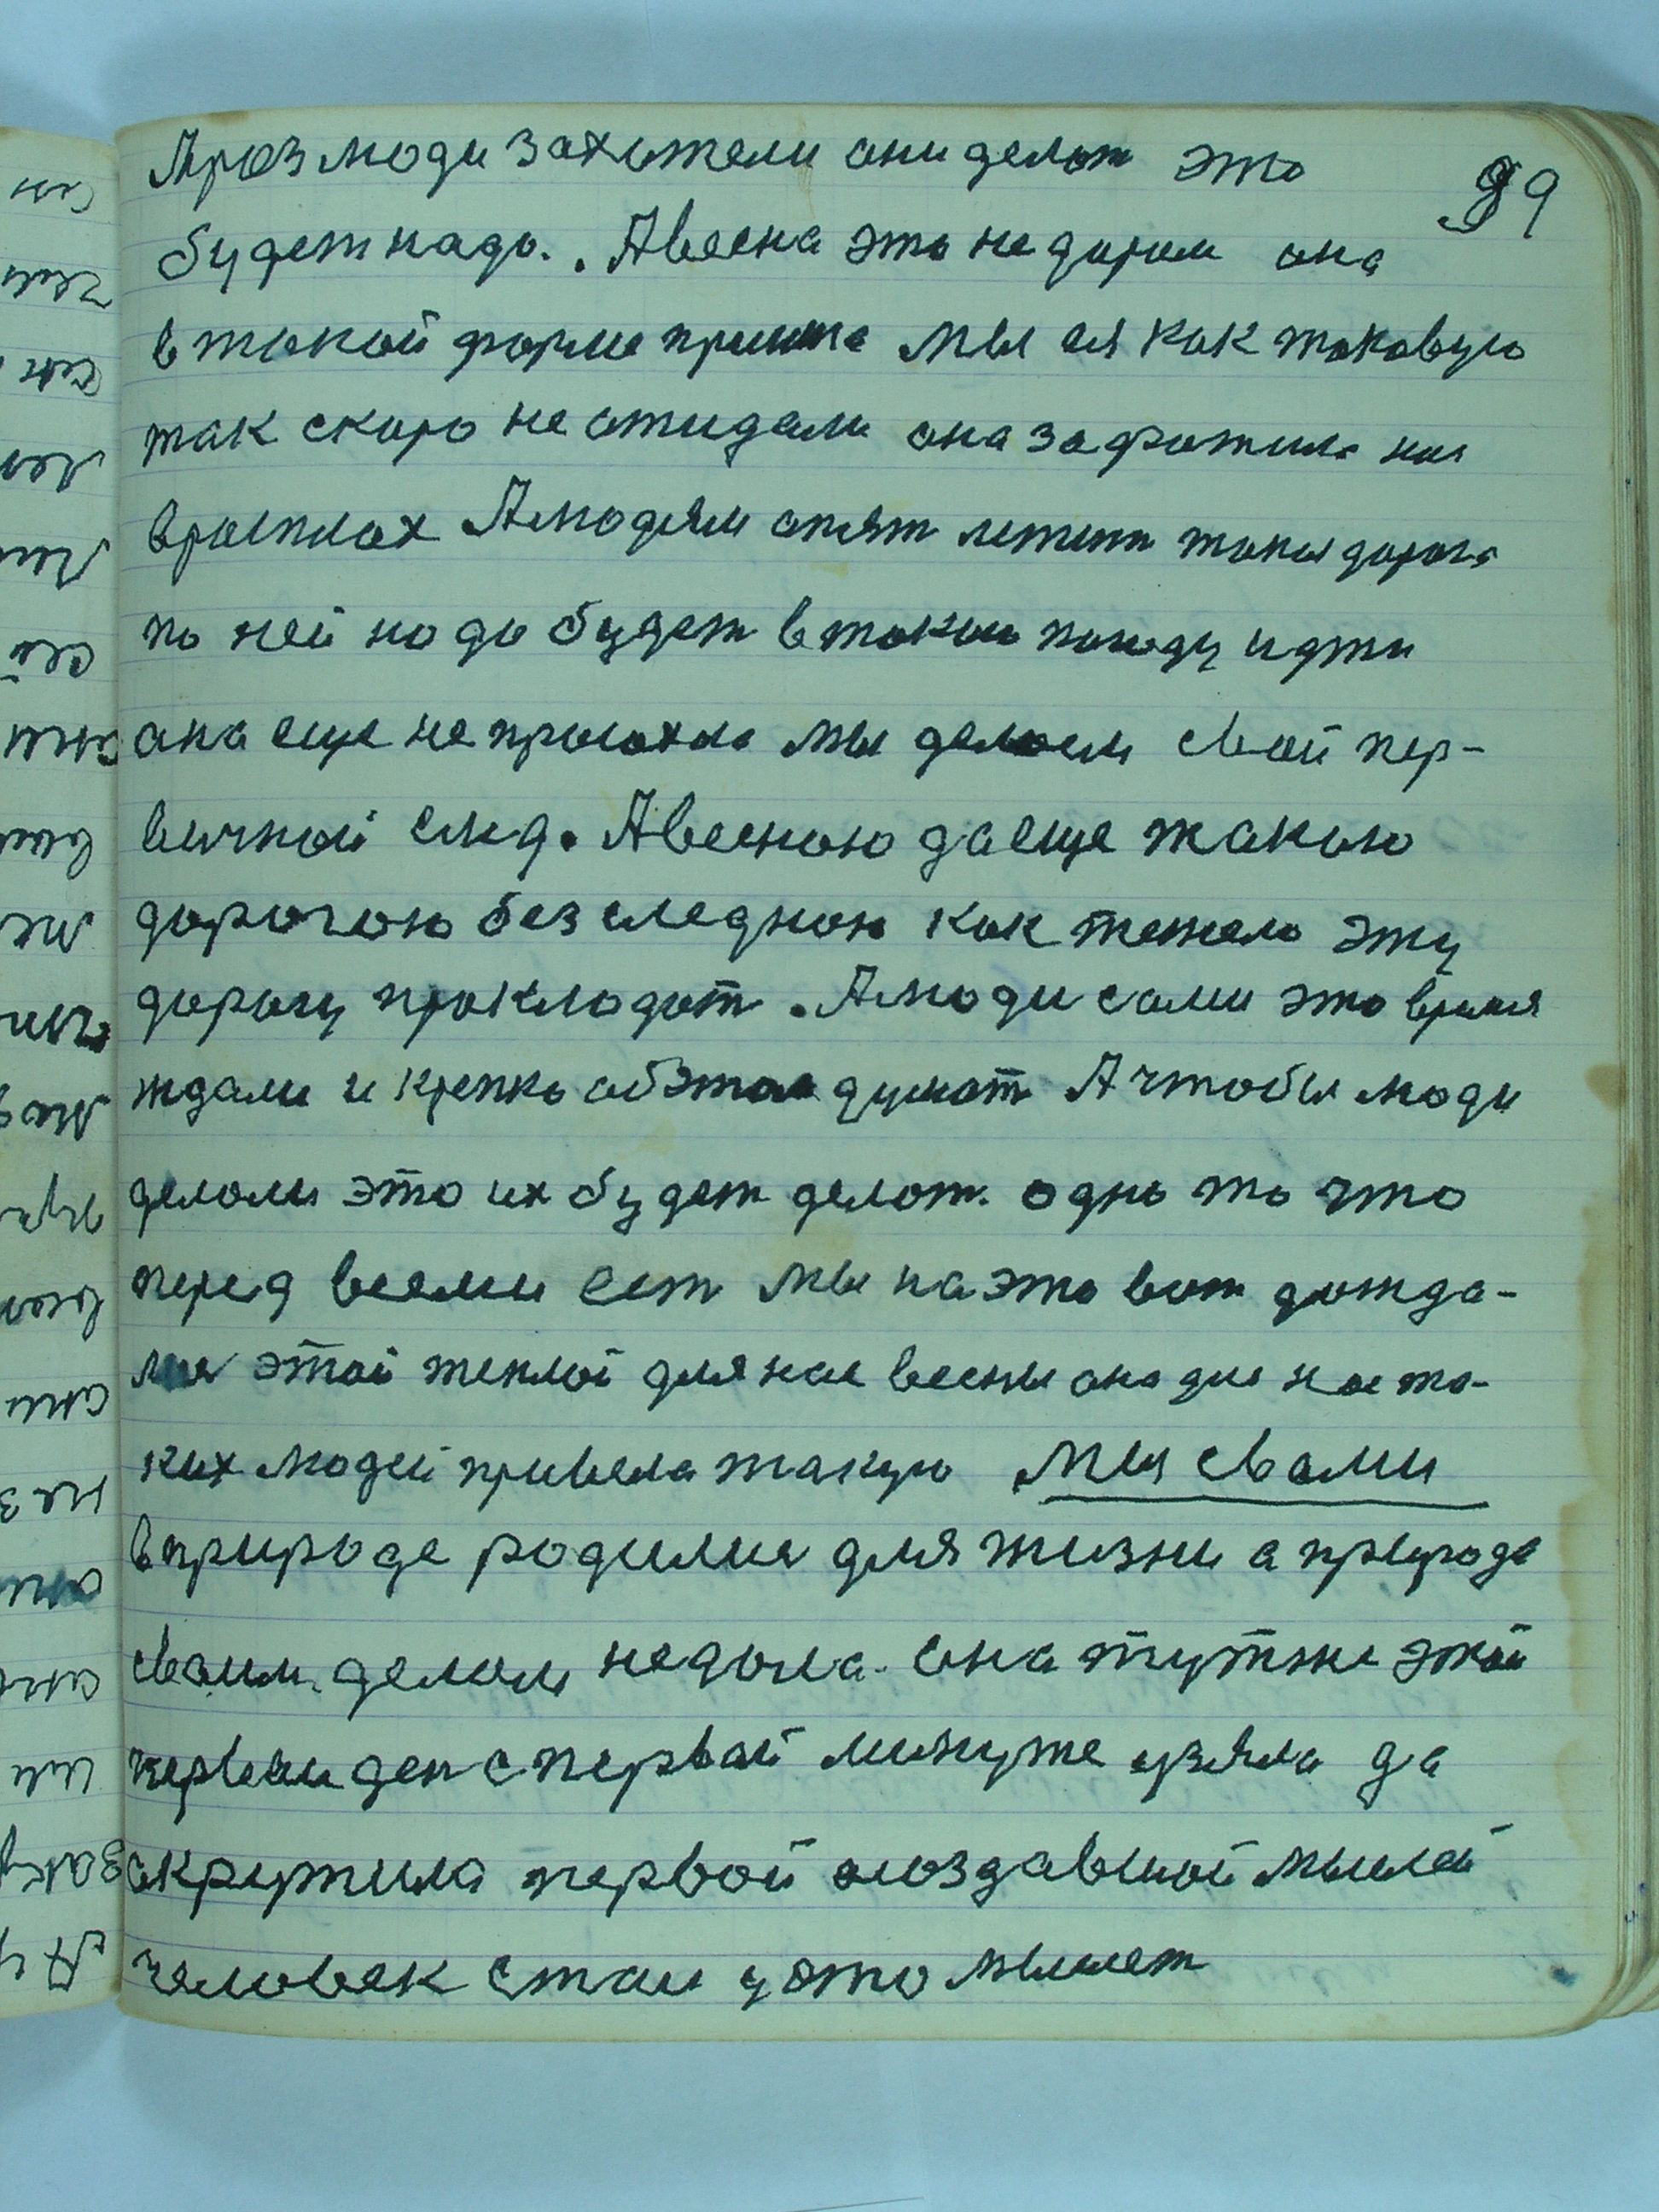 Араз люди захотели они делат это
99
будет надо.. А весна это не даром она
в такой форме пришла мы ея как таковую
так скоро не ожидали она зафатила нас
врасплох А людям опят лежит такая дорога
по ней надо будет в такою погоду идти
она еще не просохла мы делаем свой пер-
вичной след. А весною да еще такою
дорогою безследною как тежело эту
дорогу прокладат. А люди сами это время
ждали и крепко об этом думают А чтобы люди
делали это их будет делат. одно то что
перед всеми ест мы на это вот дожда-
лис этой теплой для нас весны она для нас та-
ких людей привела такую мы с вами
в природе родилис для жизни а природа
своим делом недала. она тут же этой
первый ден с первай минуте узяла да
окружила первой создавшой мыслей
человек стал у это мысле